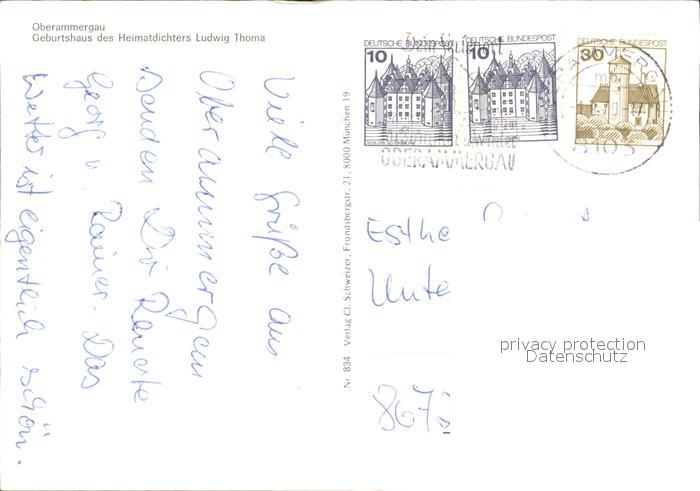 Oberammergau
Geburtshaus des Heimatdichters Ludwig Thoma
Viele Grüße aus
Oberammergau
senden Dir Renate
Georg u. Rainer. Das
Wetter ist eigentlich schön.
Nr. 834 Verlag Cl. Schweizer, Frundsbergstr. 21, 8000 München 19
DEUTSCHE BUNDESPOST
10
SCHLOSS GLÜCKSBURG
DEUTSCHE BUNDESPOST
10
DEUTSCHE BUNDESPOST
30
OBERAMMERGAU
8103
Esthe
Unte
867
privacy protection
Datenschutz